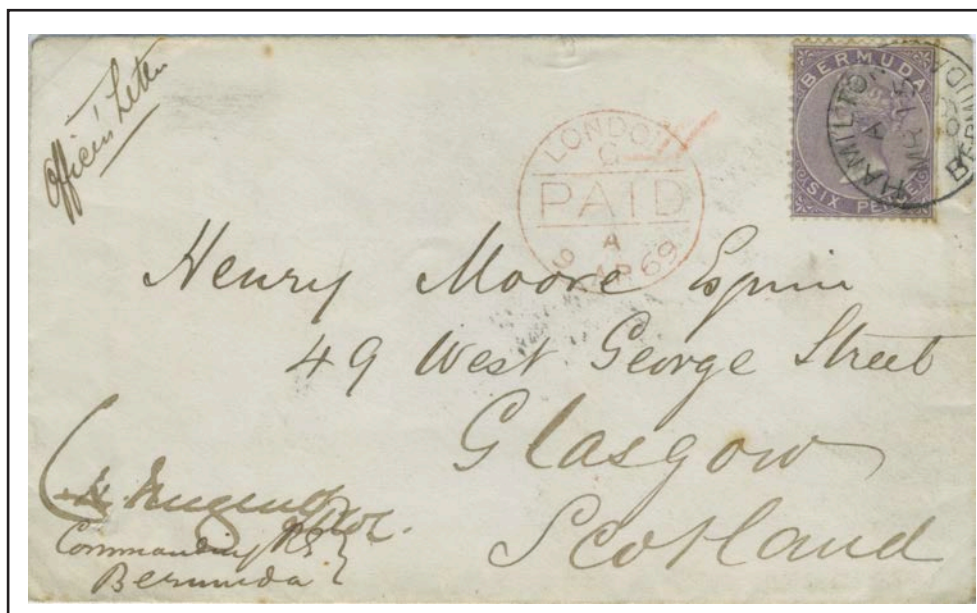 Officers' Letter
BERMUDA
SIX PENCE
HAMILTON
BERMUDA
A
LONDON
C
PAID
A
9 AP 69
Henry Moore Esquire
49 West George Street
Glasgow
Scotland
Commanding RE
Bermuda